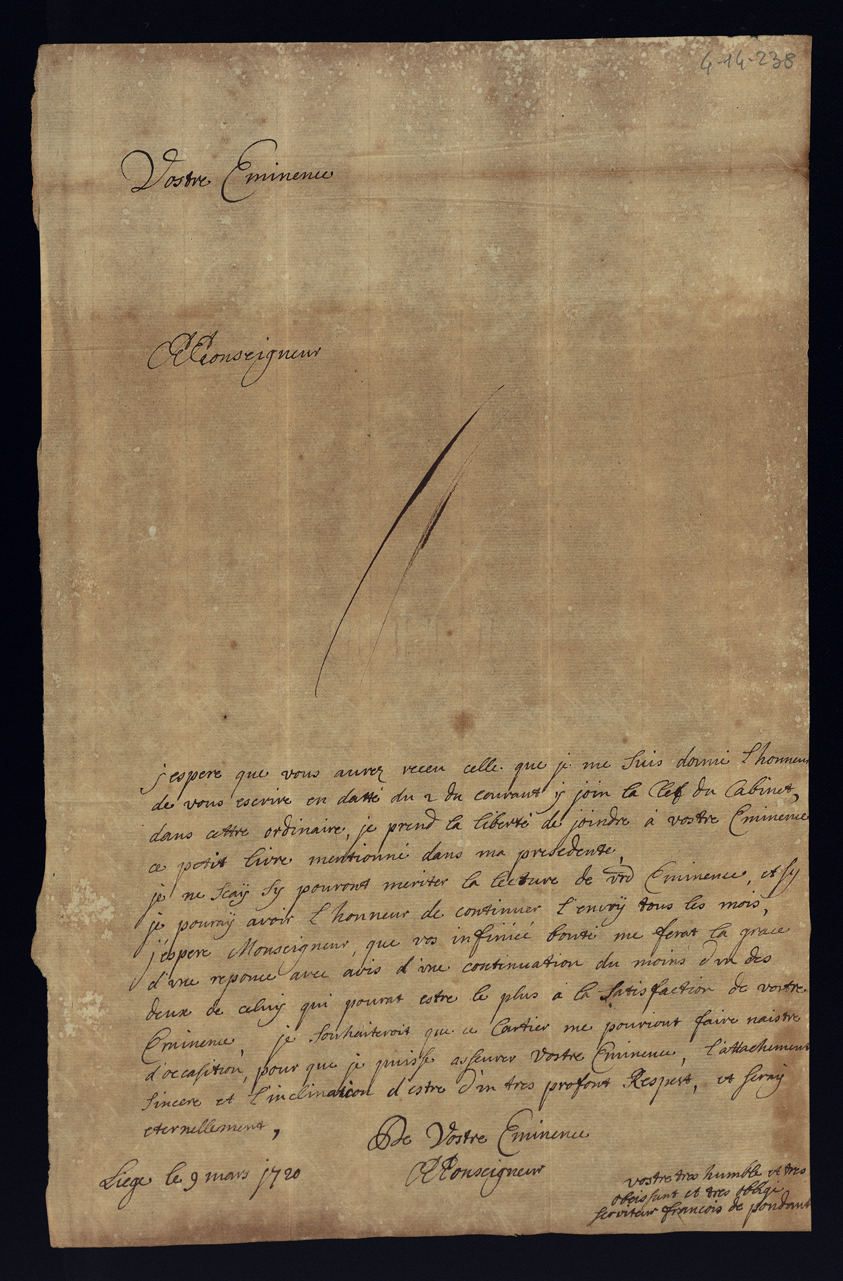 4-14-238
Vostre Eminence
Monseigneur
j'espere que vous aurez receu celle que je me suis donné l'honneur
de vous escrire en datte du 2 du courant y join la Clef du Cabinet,
dans cettre ordinaire, je prend la liberté de joindre a vostre Eminence
ce petit livre mentionné dans ma presedente,
je ne scaÿ sy pouront meriter la lecture de vre Eminence, et sy
je pouraÿ avoir l'honneur de continuer l'envoÿ tous les mois,
j'espere Monseigneur, que vos infiniéé bonté me ferat la grace
d'vne reponce avec avis d'vne continuation du moins d'vn des
deux de celuy qui pourat estre le plus à la satisfaction de vostre
Eminence, je souhaiteroit que ce Cartier me pouriont faire naistre
d'occasition, pour que je puisse asseurer Vostre Eminence, l'attachement
sincere et l'inclination d'estre d'vn tres profont Respect, et seraÿ
eternellement,
De Vostre Eminence
Monseigneur
Liege le 9 mars 1720
vostre tres humble et tres
obeissant et tres obligé
serviteur francois de